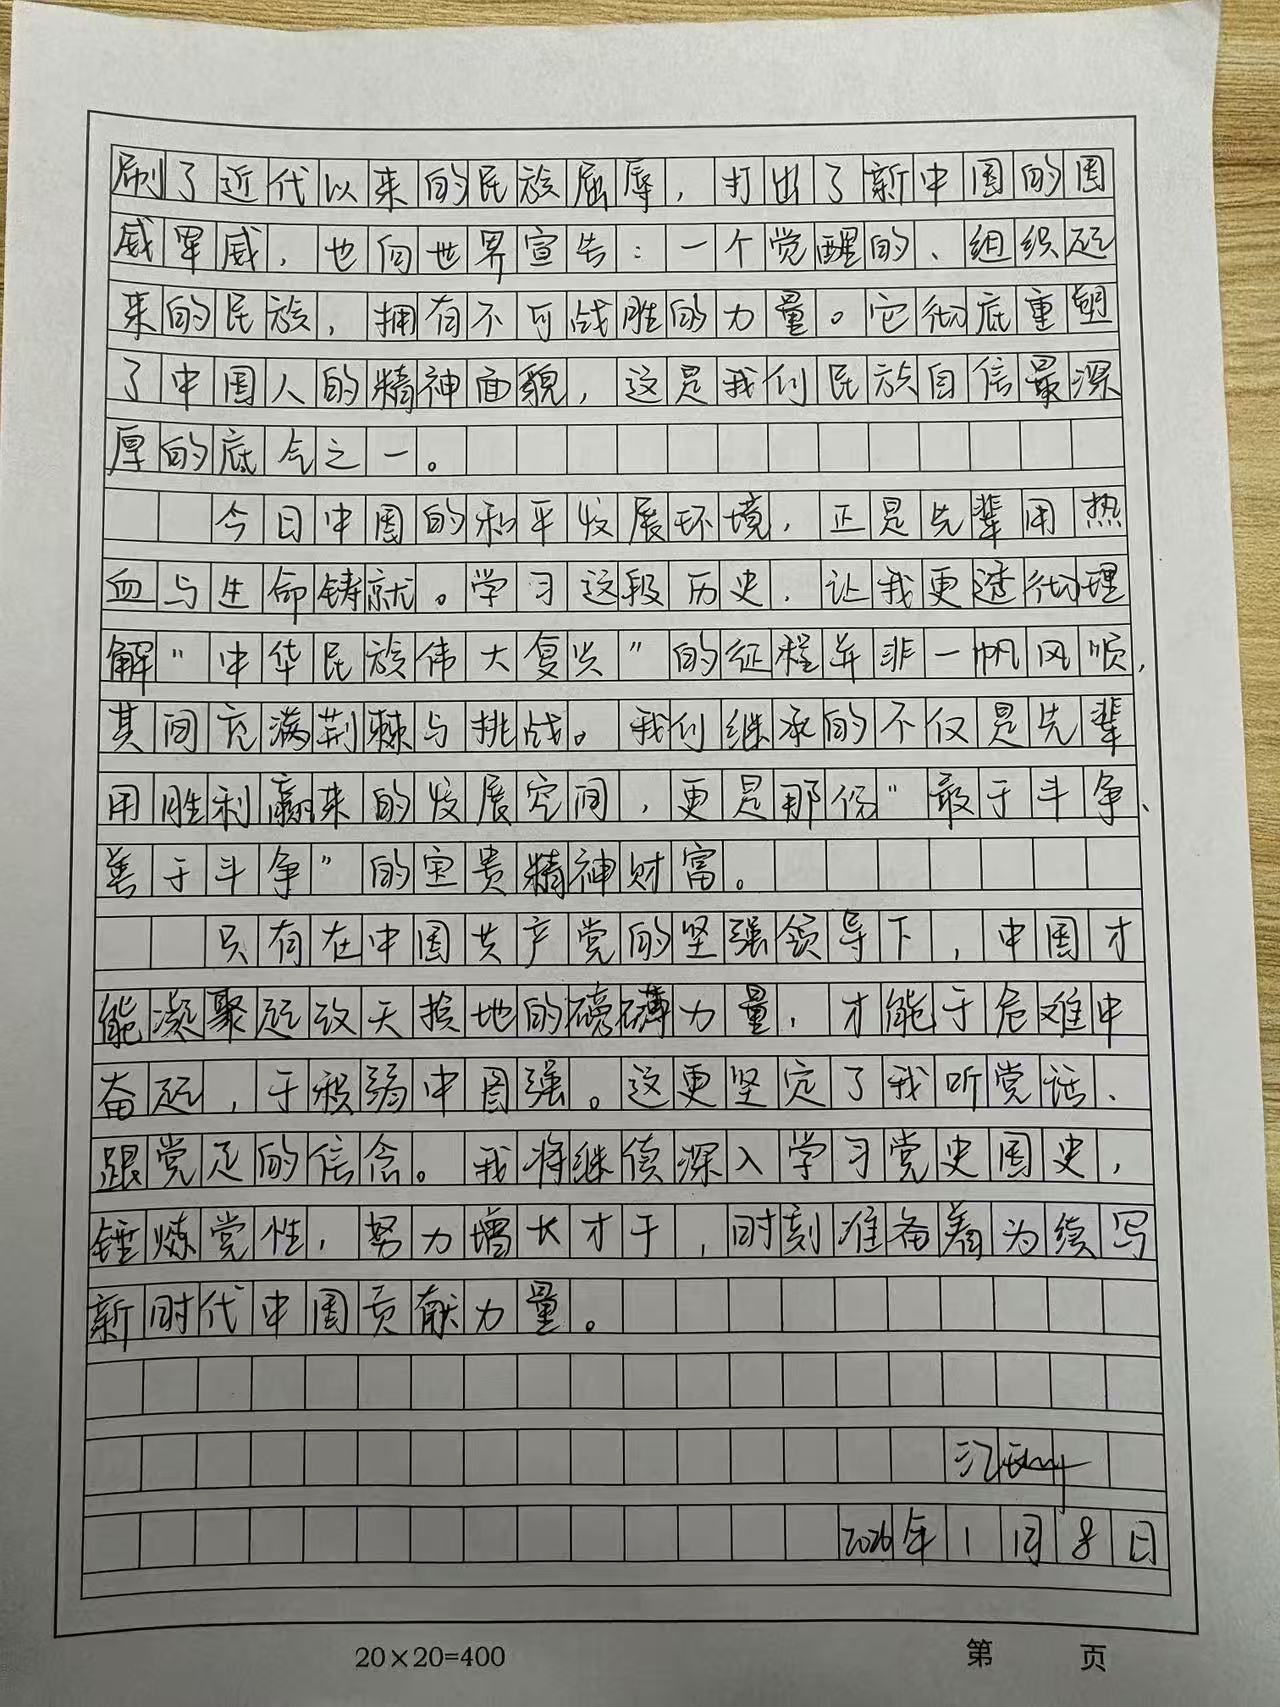 刷了近代以来的民族屈辱，打出了新中国的国
威军威，也向世界宣告：一个觉醒的、组织起
来的民族，拥有不可战胜的力量。它彻底重塑
了中国人的精神面貌，这是我们民族自信最深
厚的底气之一。
今日中国的和平发展环境，正是先辈用热
血与生命铸就。学习这段历史，让我更透彻理
解“中华民族伟大复兴”的征程并非一帆风顺，
其间充满荆棘与挑战。我们继承的不仅是先辈
用胜利赢来的发展空间，更是那份“敢于斗争、
善于斗争”的宝贵精神财富。
只有在中国共产党的坚强领导下，中国才
能凝聚起改天换地的磅礴力量，才能于危难中
奋起，于积弱中图强。这更坚定了我听党话、
跟党走的信念。我将继续深入学习党史国史，
锤炼党性，努力增长才干，时刻准备着为续写
新时代中国贡献力量。
2026年1月8日
20×20=400
第 页